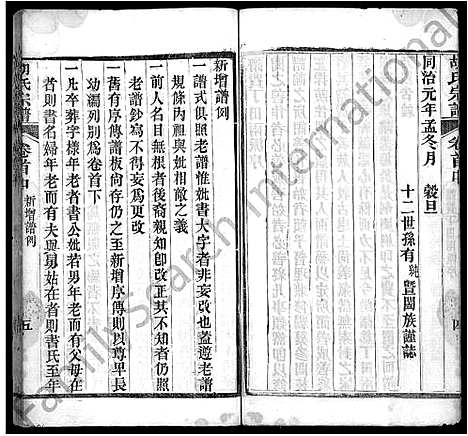 胡氏宗譜
卷首中
四
同治元年孟冬月 穀旦
十二世孫有純暨闔族謹誌
新增譜例
一譜式俱照老譜惟妣書大字者非妄改也蓋遵老譜
規條丙祖與妣相敵之義
一前人名目有miss者後裔親知卽改正其不知者仍照
老譜鈔寫不得妄爲更改
一舊有序傳譜板尙存仍之至新增序傳則以尊卑長
幼編列別爲卷首下
一凡卒葬字樣年老者書公妣若男年老而有父母在
者則書名婦年老而有夫與舅姑在者則書氏至年
胡氏宗譜
卷首中
新增譜例
五
FamilySearch International